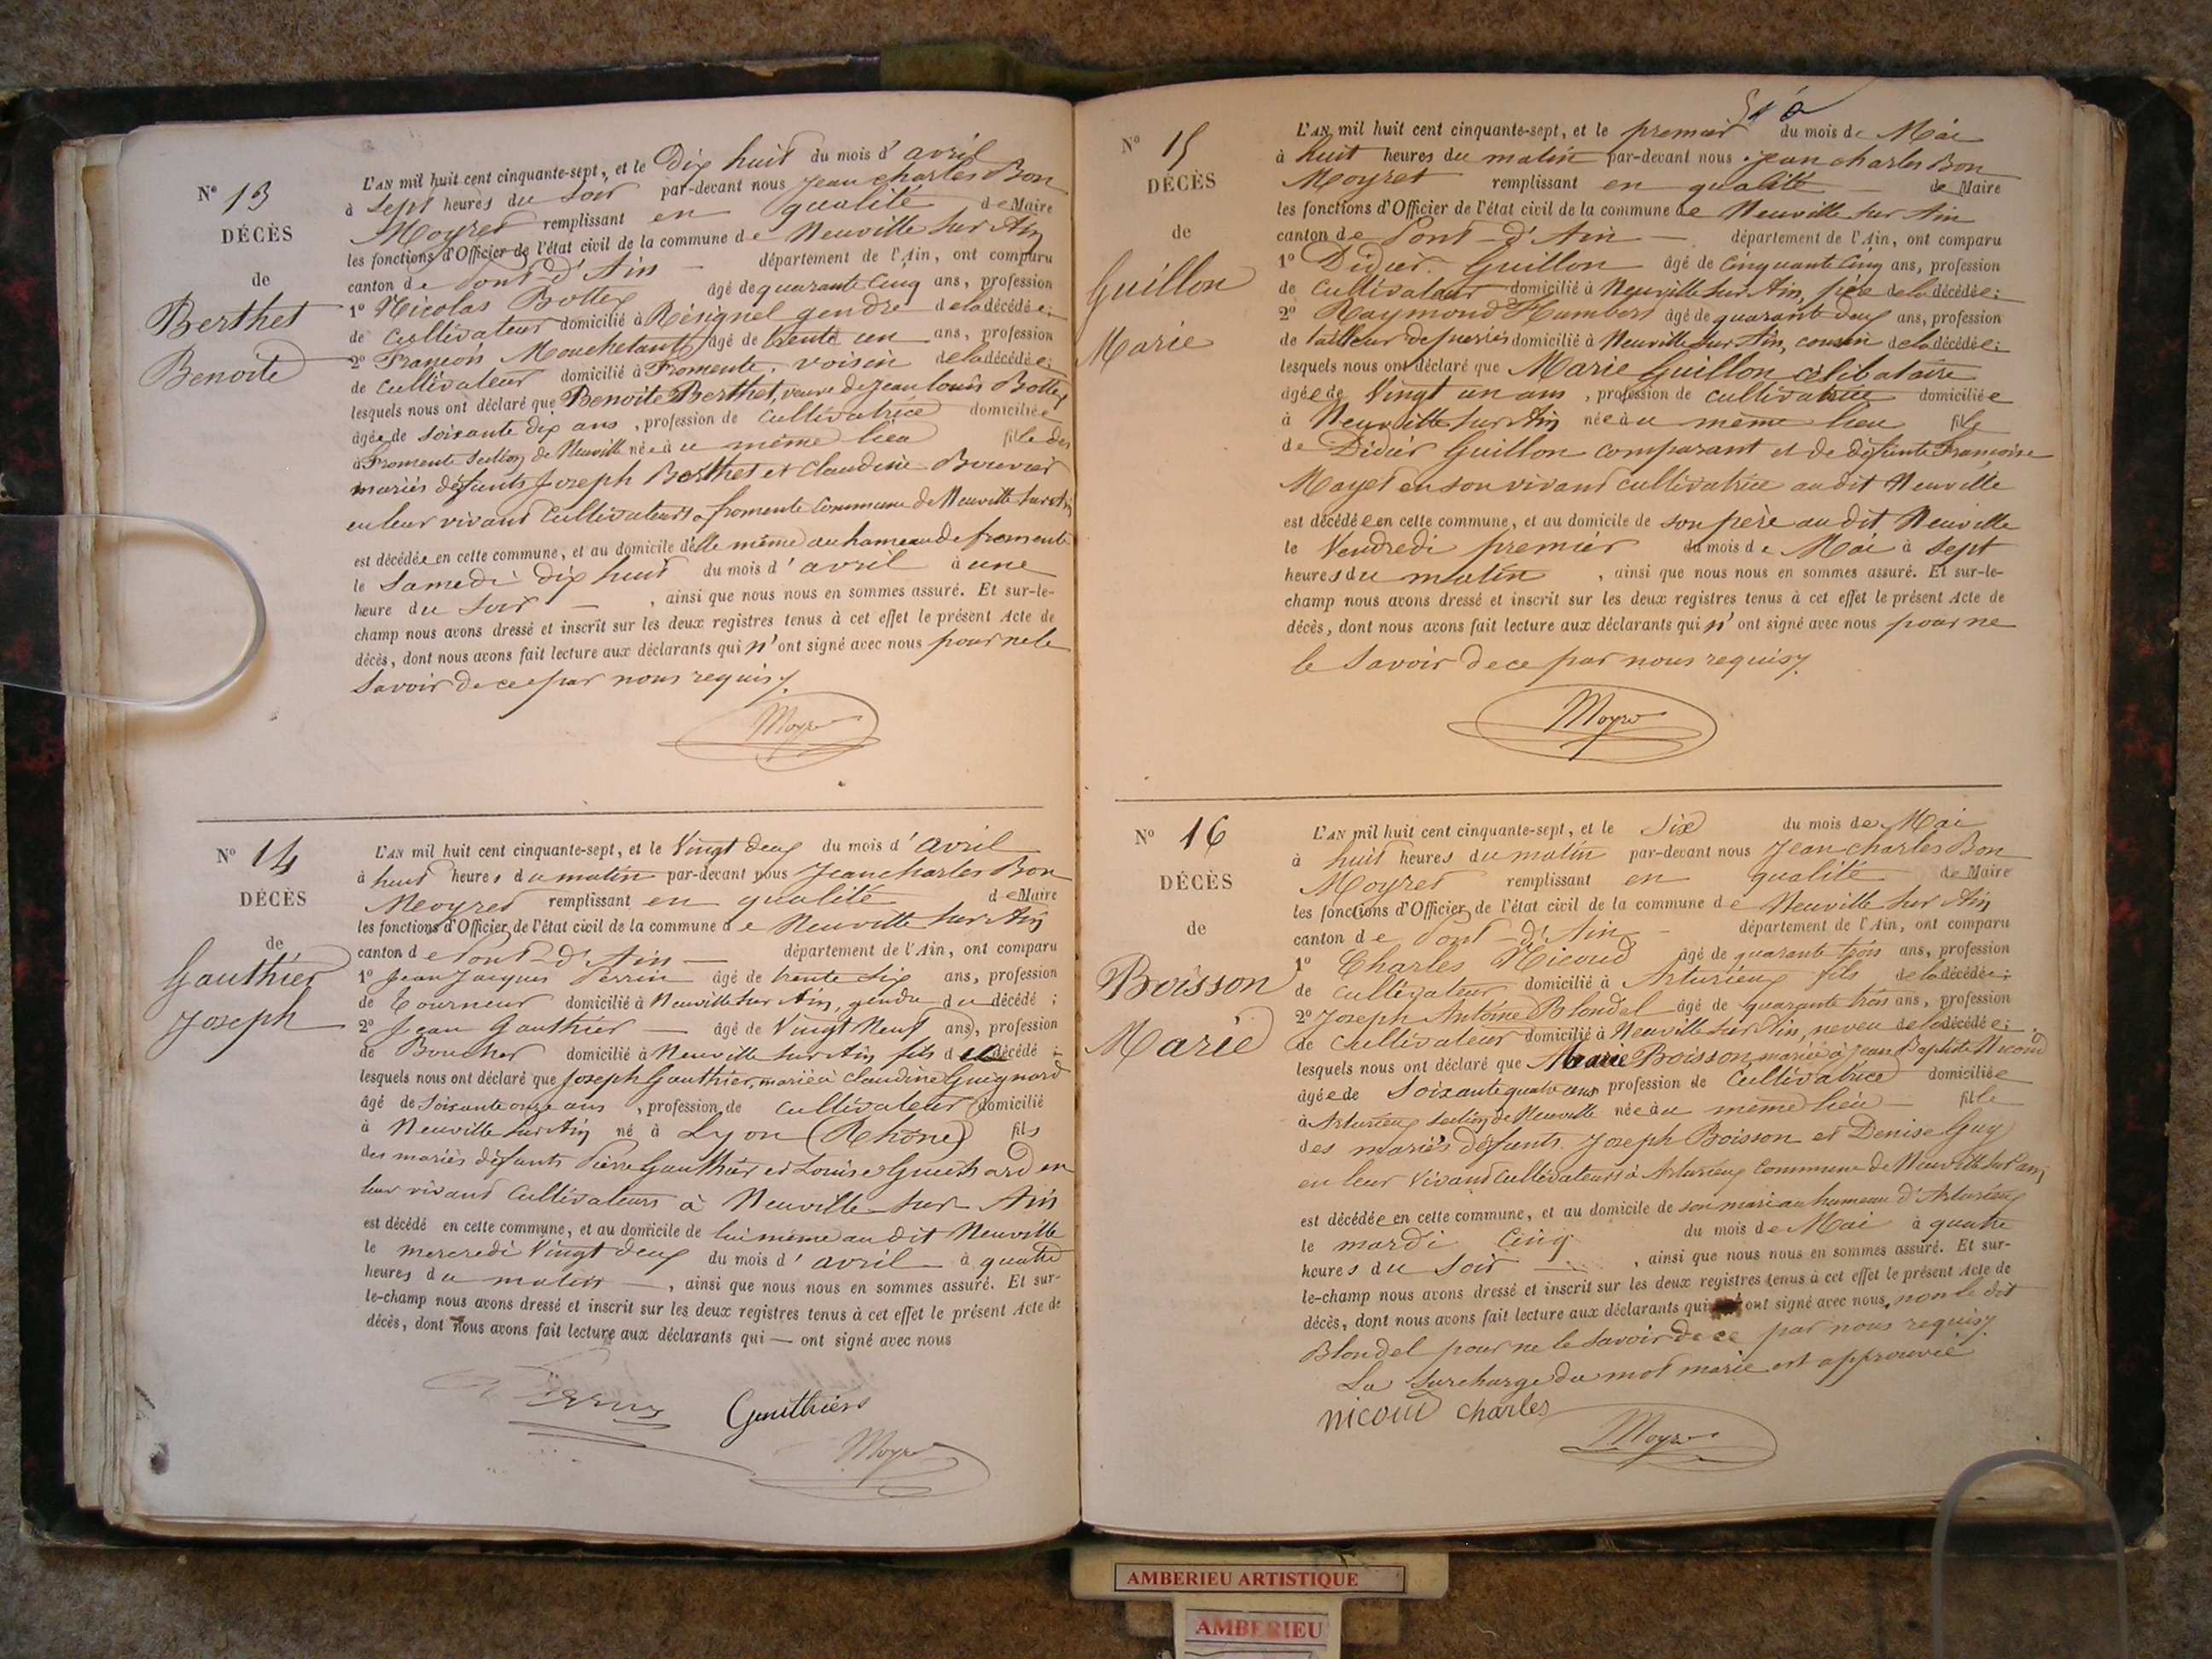 N° 13
DÉCÈS
de
Berthet
Benoite
L'AN mil huit cent cinquante-sept, et le Dix huit du mois d'avril
à Sept heures du Soir par-devant nous Jean charles Bon
Moyret remplissant en qualité de Maire
les fonctions d'Officier de l'état civil de la commune de Neuville Sur Ain
canton de Pont d'Ain — département de l'Ain, ont comparu
1° Nicolas Bottex âgé de quarante Cinq ans, profession
de Cultivateur domicilié à Résignel gendre de la décédée;
2° François Mouchetant âgé de trente un ans, profession
de Cultivateur domicilié à Fromente, voisin de la décédée;
lesquels nous ont déclaré que Benoite Berthet, veuve de Jean louis Bottex
âgée de soixante dix ans, profession de Cultivatrice domiciliée
à Fromente Section de Neuville née au même lieu fille des
mariés défunts Joseph Berthet et Claudine Bouvier
en leur vivant Cultivateurs à fromente Commune de Neuville Sur Ain
est décédée en cette commune, et au domicile d'elle même au hameau de fromente
le Samedi dix huit du mois d'avril à une
heure du Soir —, ainsi que nous nous en sommes assuré. Et sur-le-
champ nous avons dressé et inscrit sur les deux registres tenus à cet effet le présent Acte de
décès, dont nous avons fait lecture aux déclarants qui n'ont signé avec nous pour ne le
Savoir de ce par nous requis.
Moyret
N° 14
DÉCÈS
de
Gauthier
Joseph
L'AN mil huit cent cinquante-sept, et le Vingt deux du mois d'avril
à huit heures du matin par-devant nous Jean charles Bon
Moyret remplissant en qualité de Maire
les fonctions d'Officier de l'état civil de la commune de Neuville Sur Ain
canton de Pont-d'Ain — département de l'Ain, ont comparu
1° Jean Jacques Perrin âgé de trente Six ans, profession
de Tourneur domicilié à Neuville Sur Ain, gendre du décédé;
2° Jean Gauthier — âgé de Vingt Neuf ans, profession
de Boucher domicilié à Neuville Sur Ain fils du décédé;
lesquels nous ont déclaré que Joseph Gauthier, marié à Claudine Guignard
âgé de Soixante onze ans, profession de Cultivateur domicilié
à Neuville Sur Ain né à Lyon (Rhône) fils
des mariés défunts Pierre Gauthier et Louise Guichard en
leur vivant Cultivateurs à Neuville Sur Ain
est décédé en cette commune, et au domicile de lui même au dit Neuville
le mercredi Vingt deux du mois d'avril à quatre
heures du matin —, ainsi que nous nous en sommes assuré. Et sur-
le-champ nous avons dressé et inscrit sur les deux registres tenus à cet effet le présent Acte de
décès, dont nous avons fait lecture aux déclarants qui — ont signé avec nous
Perrin Gauthier
Moyret
N° 15
DÉCÈS
de
Guillon
Marie
L'AN mil huit cent cinquante-sept, et le premier du mois de Mai
à huit heures du matin par-devant nous Jean charles Bon
Moyret remplissant en qualité de Maire
les fonctions d'Officier de l'état civil de la commune de Neuville Sur Ain
canton de Pont-d'Ain — département de l'Ain, ont comparu
1° Didier Guillon âgé de Cinquante Cinq ans, profession
de Cultivateur domicilié à Neuville Sur Ain, père de la décédée;
2° Raymond Humbert âgé de quarante deux ans, profession
de tailleur de pierres domicilié à Neuville Sur Ain, cousin de la décédée;
lesquels nous ont déclaré que Marie Guillon célibataire
âgée de Vingt un ans, profession de cultivatrice domiciliée
à Neuville Sur Ain née au même lieu fille
de Didier Guillon comparant et de défunte Françoise
Mayet en son vivant Cultivatrice au dit Neuville
est décédée en cette commune, et au domicile de son père au dit Neuville
le Vendredi premier du mois de Mai à Sept
heures du matin, ainsi que nous nous en sommes assuré. Et sur-le-
champ nous avons dressé et inscrit sur les deux registres tenus à cet effet le présent Acte de
décès, dont nous avons fait lecture aux déclarants qui n'ont signé avec nous pour ne
le Savoir de ce par nous requis.
Moyret
N° 16
DÉCÈS
de
Boisson
Marie
L'AN mil huit cent cinquante-sept, et le Six du mois de Mai
à huit heures du matin par-devant nous Jean charles Bon
Moyret remplissant en qualité de Maire
les fonctions d'Officier de l'état civil de la commune de Neuville Sur Ain
canton de Pont-d'Ain — département de l'Ain, ont comparu
1° Charles Nicoud âgé de quarante trois ans, profession
de cultivateur domicilié à Arturieux fils de la décédée;
2° Joseph Antoine Blondel âgé de quarante trois ans, profession
de Cultivateur domicilié à Neuville Sur Ain, neveu de la décédée;
lesquels nous ont déclaré que Marie Boisson, mariée à Jean Baptiste Nicoud
âgée de Soixante quatre ans profession de Cultivatrice domiciliée
à Arturieux Section de Neuville née au même lieu — fille
des mariés défunts Joseph Boisson et Denise Guy
en leur Vivant Cultivateurs à Arturieux Commune de Neuville Sur Ain
est décédée en cette commune, et au domicile de son mari au hameau d'Arturieux
le mardi Cinq du mois de Mai à quatre
heures du Soir —, ainsi que nous nous en sommes assuré. Et sur-
le-champ nous avons dressé et inscrit sur les deux registres tenus à cet effet le présent Acte de
décès, dont nous avons fait lecture aux déclarants qui ont signé avec nous, non le dit
Blondel pour ne le Savoir de ce par nous requis.
La Surcharge du mot marie est approuvée
nicoud charles
Moyret
AMBERIEU ARTISTIQUE
AMBERIEU